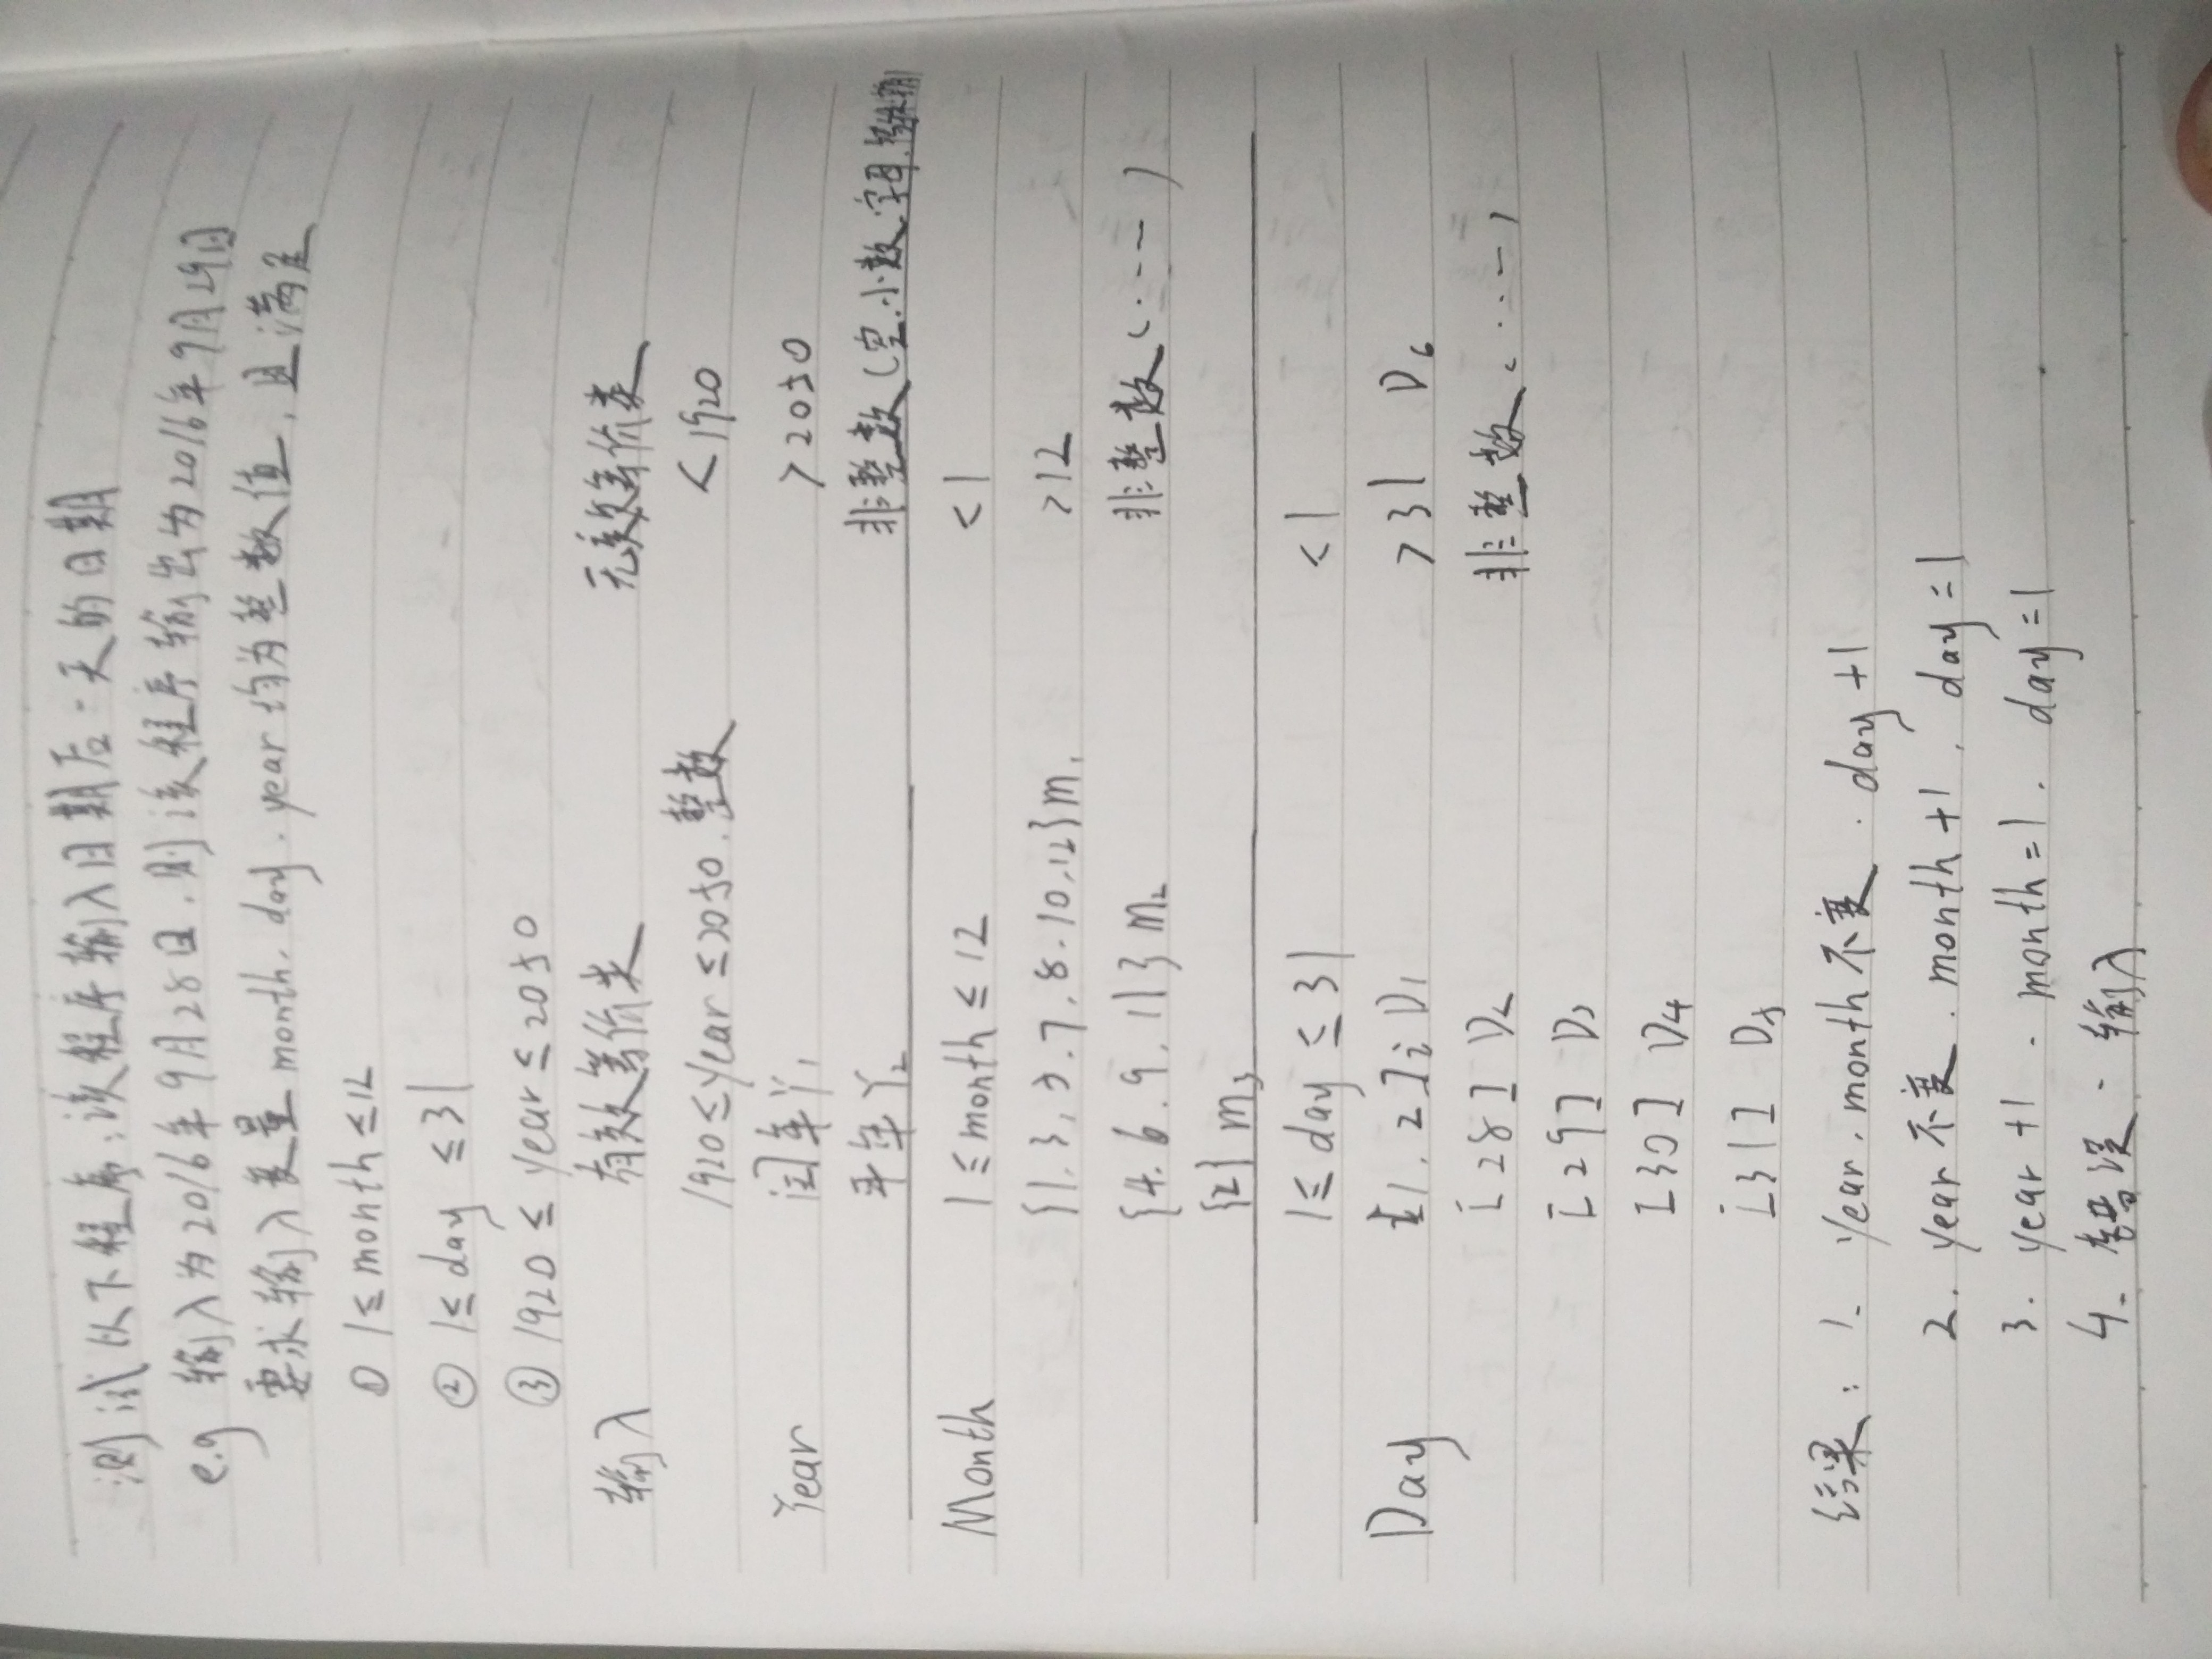 测试以下程序:该程序输入日期后一天的日期
e.g 输入为2016年9月28日.则该程序输出为2016年9月29日
要求输入变量month.day.year均为整数值,且满足
① 1≤month≤12
② 1≤day ≤31
③ 1920≤year≤2050
输入 有效等价类 无效等价类
1920≤year≤2050.整数 <1920
Year 闰年Y1 >2050
平年Y2 非整数(空.小数.字母.
Month 1≤month≤12 <1
{1.3,5.7.8.10.12}m1 >12
{4.6.9.11}m2 非整数(....)
{2}m3
1≤day≤31 <1
Day [1.27] D1 >31 D6
[28] D2 非整数(....)
[29] D3
[30] D4
[31] D5
结果: 1. year.month不变.day+1
2. year不变.month+1.day=1
3. year+1.month=1.day=1
4. 错误.输入